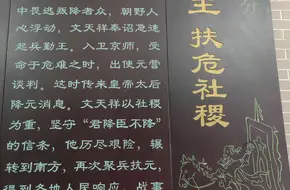 分
生 扶危社稷
中畏逃叛降者众，朝野人
心浮动，文天祥奉诏急速
起兵勤王。入卫京师，受
命于危难之时，出使元营
谈判。这时传来皇帝太后
降元消息。文天祥以社稷
为重，坚守“君降臣不降”
的信条，他历尽艰险，辗
转到南方，再次聚兵抗元，
得到各地人民响应，战事